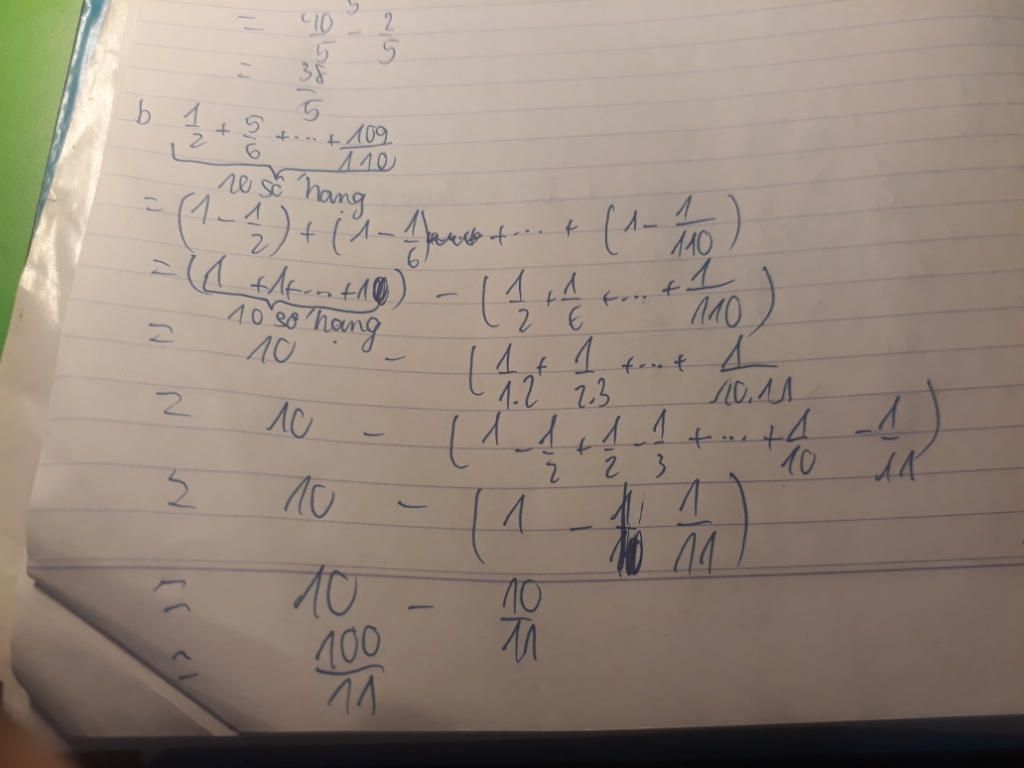 = 40/5 - 2/5
= 38/5
b 1/2 + 5/6 + ... + 109/110
10 số hạng
= (1 - 1/2) + (1 - 1/6) + ... + (1 - 1/110)
= (1 + 1 + ... + 1) - (1/2 + 1/6 + ... + 1/110)
10 số hạng
= 10 - (1/1.2 + 1/2.3 + ... + 1/10.11
= 10 - (1 - 1/2 + 1/2 - 1/3 + ... + 1/10 - 1/11)
= 10 - (1 - 1/11)
= 10 - 10/11
= 100/11